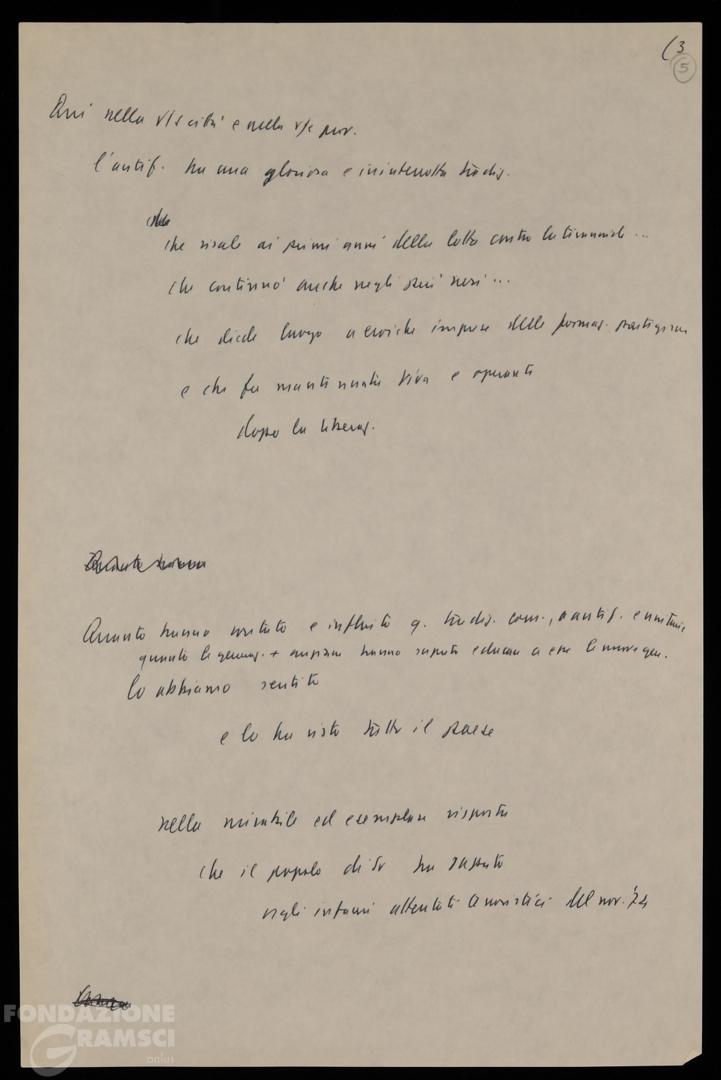 (3
5
Qui nella v/s città e nella v/s prov.
l'antif. ha una gloriosa e ininterrotta tradiz.
che
che risale ai primi anni della lotta contro la tirannide ...
che continuò anche negli anni più neri ...
che diede luogo a eroiche imprese delle formaz. partigiane
e che fu mantenuta viva e operante
dopo la liberaz.
Quanto hanno contato e influito q. tradiz. com., antif. e unitarie,
quanto le generaz. + anziane hanno saputo educare a esse le nuove gen.
lo abbiamo sentito
e lo ha visto tutto il paese
nella mirabile ed esemplare risposta
che il popolo di Sv ha saputo
agli infami attentati terroristici del nov. '74
FONDAZIONE
GRAMSCI
onlus